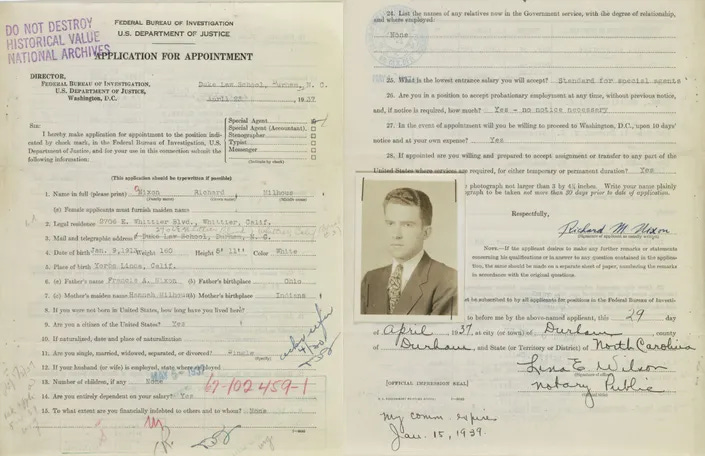 DO NOT DESTROY
HISTORICAL VALUE
NATIONAL ARCHIVES
FEDERAL BUREAU OF INVESTIGATION
U.S. DEPARTMENT OF JUSTICE
APPLICATION FOR APPOINTMENT
DIRECTOR,
FEDERAL BUREAU OF INVESTIGATION,
U.S. DEPARTMENT OF JUSTICE,
WASHINGTON, D.C.
Duke Law School, Durham, N. C.
April, 1937
SIR:
I hereby make application for appointment to the position indi-
cated by check mark, in the Federal Bureau of Investigation, U.S.
Department of Justice, and for your use in this connection submit the
following information:
Special Agent
Special Agent (Accountant)
Stenographer
Typist
Messenger
(Indicate by check)
(This application should be typewritten if possible)
1. Name in full (please print) Nixon Richard Milhous
(Family name) (Given name) (Middle name)
(a) Female applicants must furnish maiden name
2. Legal residence E. Whittier Blvd., Whittier, Calif.
3. Mail and telegraphic address Duke Law School, Durham, N. C.
4. Date of birth Jan. 9, 1913 Weight 160 Height 5' 11" Color White
5. Place of birth Yorba Linda, Calif.
6. (a) Father's name Francis A. Nixon (b) Father's birthplace Ohio
7. (a) Mother's maiden name Hannah Milhous (b) Mother's birthplace Indiana
8. If you were not born in United States, how long have you lived here?
9. Are you a citizen of the United States? Yes
10. If naturalized, date and place of naturalization
11. Are you single, married, widowed, separated, or divorced? Single
(Specify)
12. If your husband (or wife) is employed, state where employed
13. Number of children, if any None
1937
67-102459-1
14. Are you entirely dependent on your salary? Yes
15. To what extent are you financially indebted to others and to whom? None
24. List the names of any relatives now in the Government service, with the degree of relationship,
and where employed:
None
25. What is the lowest entrance salary you will accept? Standard for special agents
26. Are you in a position to accept probationary employment at any time, without previous notice,
and, if notice is required, how much? Yes - no notice necessary
27. In the event of appointment will you be willing to proceed to Washington, D.C., upon 10 days'
notice and at your own expense? Yes
28. If appointed are you willing and prepared to accept assignment or transfer to any part of the
United States where services are required, for either temporary or permanent duration? Yes
photograph not larger than 3 by 4½ inches. Write name plainly
graph to be taken not more than 30 days prior to date of application.
Respectfully,
Richard M. Nixon
(Signature of applicant as usually written)
NOTE.—If the applicant desires to make any further remarks or statements
concerning his qualifications or in answer to any question contained in the applica-
tion, the same should be made on a separate sheet of paper, numbering the remarks
in accordance with the original questions.
t be subscribed to by all applicants for positions in the Federal Bureau of Investi-
to before me by the above-named applicant, this 29 day
of April, 1937, at city (or town) of Durham, county
of Durham, and State (or Territory or District) of North Carolina
Lena E. Wilson
Notary Public
[OFFICIAL IMPRESSION SEAL]
My comm. expires
Jan. 15, 1939.